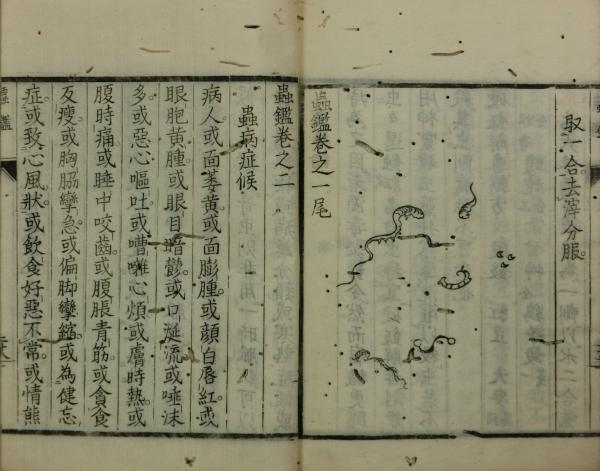 取一合去滓分服
蟲鑑巻之一尾
蟲鑑巻之二
蟲病症候
病人或面萎黄或面膨腫或顔白唇紅或
眼胞黄腫或眼目暗鬱或口涎流或唾沫
多或惡心嘔吐或嘈囃心煩或膚時熱或
腹時痛或睡中咬齒或腹脹青筋或貪食
反瘦或胸脇攣急或偏脚攣縮或為健忘
症或致心風狀或飲食好惡不常或情態